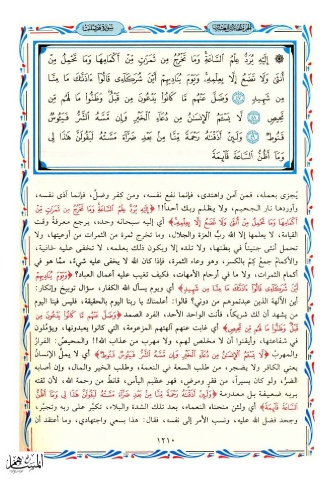 الجزء الخامس والعشرون
سورة فصلت
إِلَيْهِ يُرَدُّ عِلْمُ السَّاعَةِ وَمَا تَخْرُجُ مِن ثَمَرَاتٍ مِّنْ أَكْمَامِهَا وَمَا تَحْمِلُ مِنْ
أُنثَى وَلَا تَضَعُ إِلَّا بِعِلْمِهِ وَيَوْمَ يُنَادِيهِمْ أَيْنَ شُرَكَائِي قَالُوا آذَنَّاكَ مَا مِنَّا
مِن شَهِيدٍ ٤٧ وَضَلَّ عَنْهُم مَّا كَانُوا يَدْعُونَ مِن قَبْلُ وَظَنُّوا مَا لَهُم مِّن
مَّحِيصٍ ٤٨ لَا يَسْأَمُ الْإِنسَانُ مِن دُعَاءِ الْخَيْرِ وَإِن مَّسَّهُ الشَّرُّ فَيَئُوسٌ
قَنُوطٌ ٤٩ وَلَئِنْ أَذَقْنَاهُ رَحْمَةً مِّنَّا مِن بَعْدِ ضَرَّاءَ مَسَّتْهُ لَيَقُولَنَّ هَذَا لِي
وَمَا أَظُنُّ السَّاعَةَ قَائِمَةً
يُجزى بعمله، فمن آمن واهتدى، فإنما نفع نفسه، ومن كفر وضلَّ، فإنما أذى نفسه،
وأوردها نار الجحيم، ولا يظلم ربك أحداً!! ﴿إِلَيْهِ يُرَدُّ عِلْمُ السَّاعَةِ وَمَا تَخْرُجُ مِن ثَمَرَاتٍ مِّنْ
أَكْمَامِهَا وَمَا تَحْمِلُ مِنْ أُنثَى وَلَا تَضَعُ إِلَّا بِعِلْمِهِ﴾ أي إليه سبحانه وحده، يرجع معرفة وقت
القيامة، لا يعلمها إلا الله ربُّ العزة والجلال، وما تخرج ثمرة من الثمرات من أوعيتها، ولا
تحمل أنثى جنيناً في بطنها، ولا تلده إلا ويكون ذلك بعلمه، لا تخفى عليه خافية،
والأكمامُ جمعُ كِمّ بالكسر، وهو وعاء الثمرة، فإذا كان الله لا يخفى عليه شيء، مما هو في
أكمام الثمرات، ولا ما في أرحام الأمهات، فكيف تغيب عليه أعمال العباد؟ ﴿وَيَوْمَ يُنَادِيهِمْ
أَيْنَ شُرَكَائِي قَالُوا آذَنَّاكَ مَا مِنَّا مِن شَهِيدٍ﴾ أي ويوم يسأل الله الكفار، سؤال توبيخ وإنكار:
أين الآلهة الذين عبدتموهم من دوني؟ قالوا: أعلمناك يا ربنا اليوم بالحقيقة، فليس فينا اليوم
من يشهد أن لك شريكاً، فأنت الواحد الأحد، الفرد الصمد ﴿وَضَلَّ عَنْهُم مَّا كَانُوا يَدْعُونَ مِن
قَبْلُ وَظَنُّوا مَا لَهُم مِّن مَّحِيصٍ﴾ أي غابت عنهم آلهتهم المزعومة التي كانوا يعبدونها، ويؤمِّلون
في شفاعتها، وأيقنوا أن لا مخلص لهم، ولا مهرب من عذاب الله!! والمحيصُ: الفرارُ
والمهربُ ﴿لَا يَسْأَمُ الْإِنسَانُ مِن دُعَاءِ الْخَيْرِ وَإِن مَّسَّهُ الشَّرُّ فَيَئُوسٌ قَنُوطٌ﴾ أي لا يملُّ الإنسانُ
يعني الكافر ولا يضجر، من طلب السعة في النعمة، وطلب الخير والمال، وإن أصابه
الضرُّ، ولو كان يسيراً، من فقرٍ ومرض، فهو عظيم اليأس، قانطٌ من رحمة الله، لأن ثقته
بربه ضعيفة بل معدومة ﴿وَلَئِنْ أَذَقْنَاهُ رَحْمَةً مِّنَّا مِن بَعْدِ ضَرَّاءَ مَسَّتْهُ لَيَقُولَنَّ هَذَا لِي وَمَا أَظُنُّ
السَّاعَةَ قَائِمَةً﴾ أي ولئن منحناه النعماء، بعد تلك الشدة والبلاء، تكبَّر على ربه وتجبَّر،
وجحد فضل الله عليه، ونسب الأمر إلى نفسه، فقال: هذا بسعي واجتهادي، وما أعتقد أن
١٢١٠